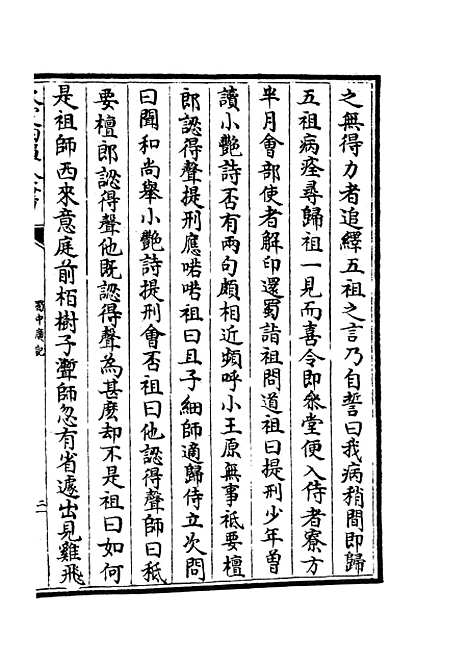 之無得力者追繹五祖之言乃自誓曰我病稍間即歸
五祖病痊尋歸祖一見而喜令即叅堂便入侍者寮方
半月會部使者解印還蜀詣祖問道祖曰提刑少年曽
讀小艶詩否有兩句頗相近頻呼小王原無事祗要檀
郎認得聲提刑應喏喏祖曰且子細師適歸侍立次問
曰聞和尚舉小艶詩提刑會否祖曰他認得聲師曰秪
要檀郎認得聲他既認得聲為甚麽却不是祖曰如何
是祖師西來意庭前栢樹子聻師忽有省遽出見雞飛
蜀中廣記
二